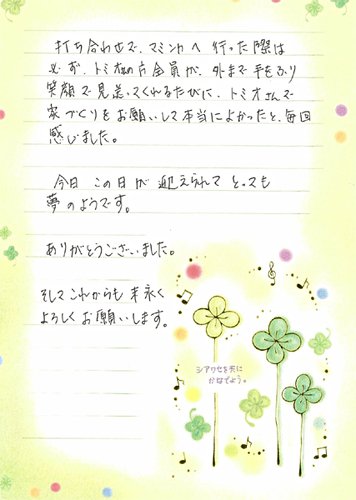 打ち合わせで、マミントへ 行った際は
必ず、トミオの方全員が、外まで手をふり
笑顔で見送ってくれるたびに、トミオさんで
家づくりをお願いして本当によかったと、毎回
感じました。
今日 この日が 迎えられて とっても
夢のようです。
ありがとうございました。
そしてこれからも 末永く
よろしくお願いします。
シアワセを共に
かなでよう。